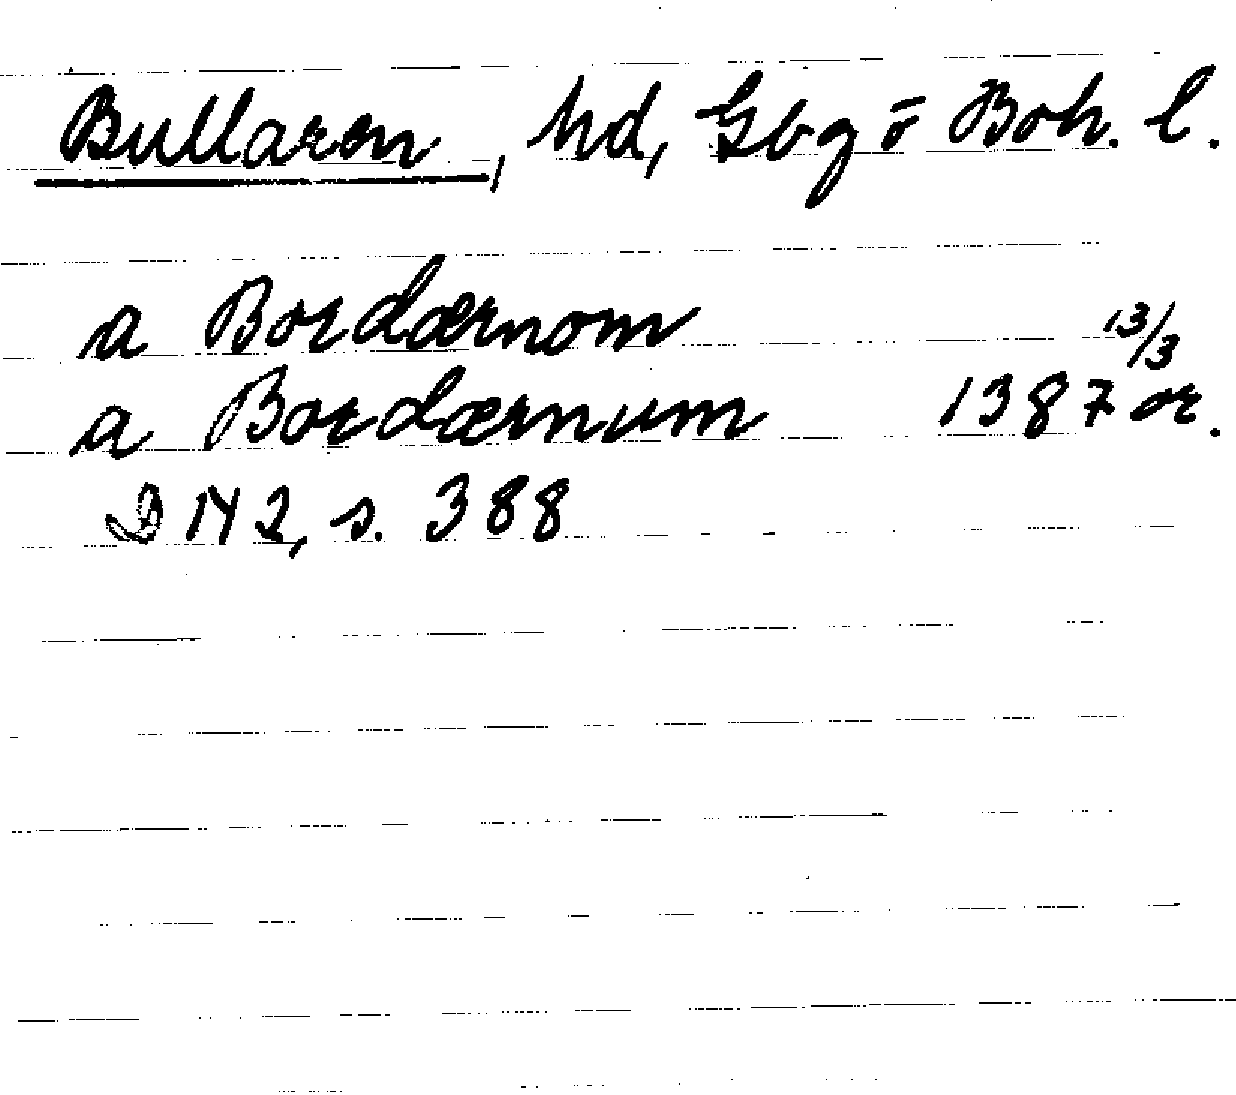 Bullaren, hd, Gbg o Boh. l.
a Bordærnom 13/3
a Bordærnum 1387 or.
D N 2, s. 388